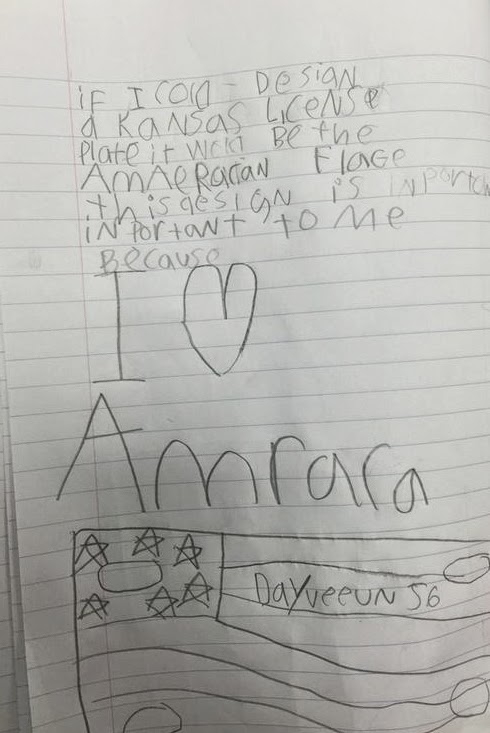 if I cold - Design
a KANSAS License
Plate it wold Be the
AmAeRacan Flage
this design is inportcn
inPortant to me
Because
I ♡
Amrara
DayveeuN 56